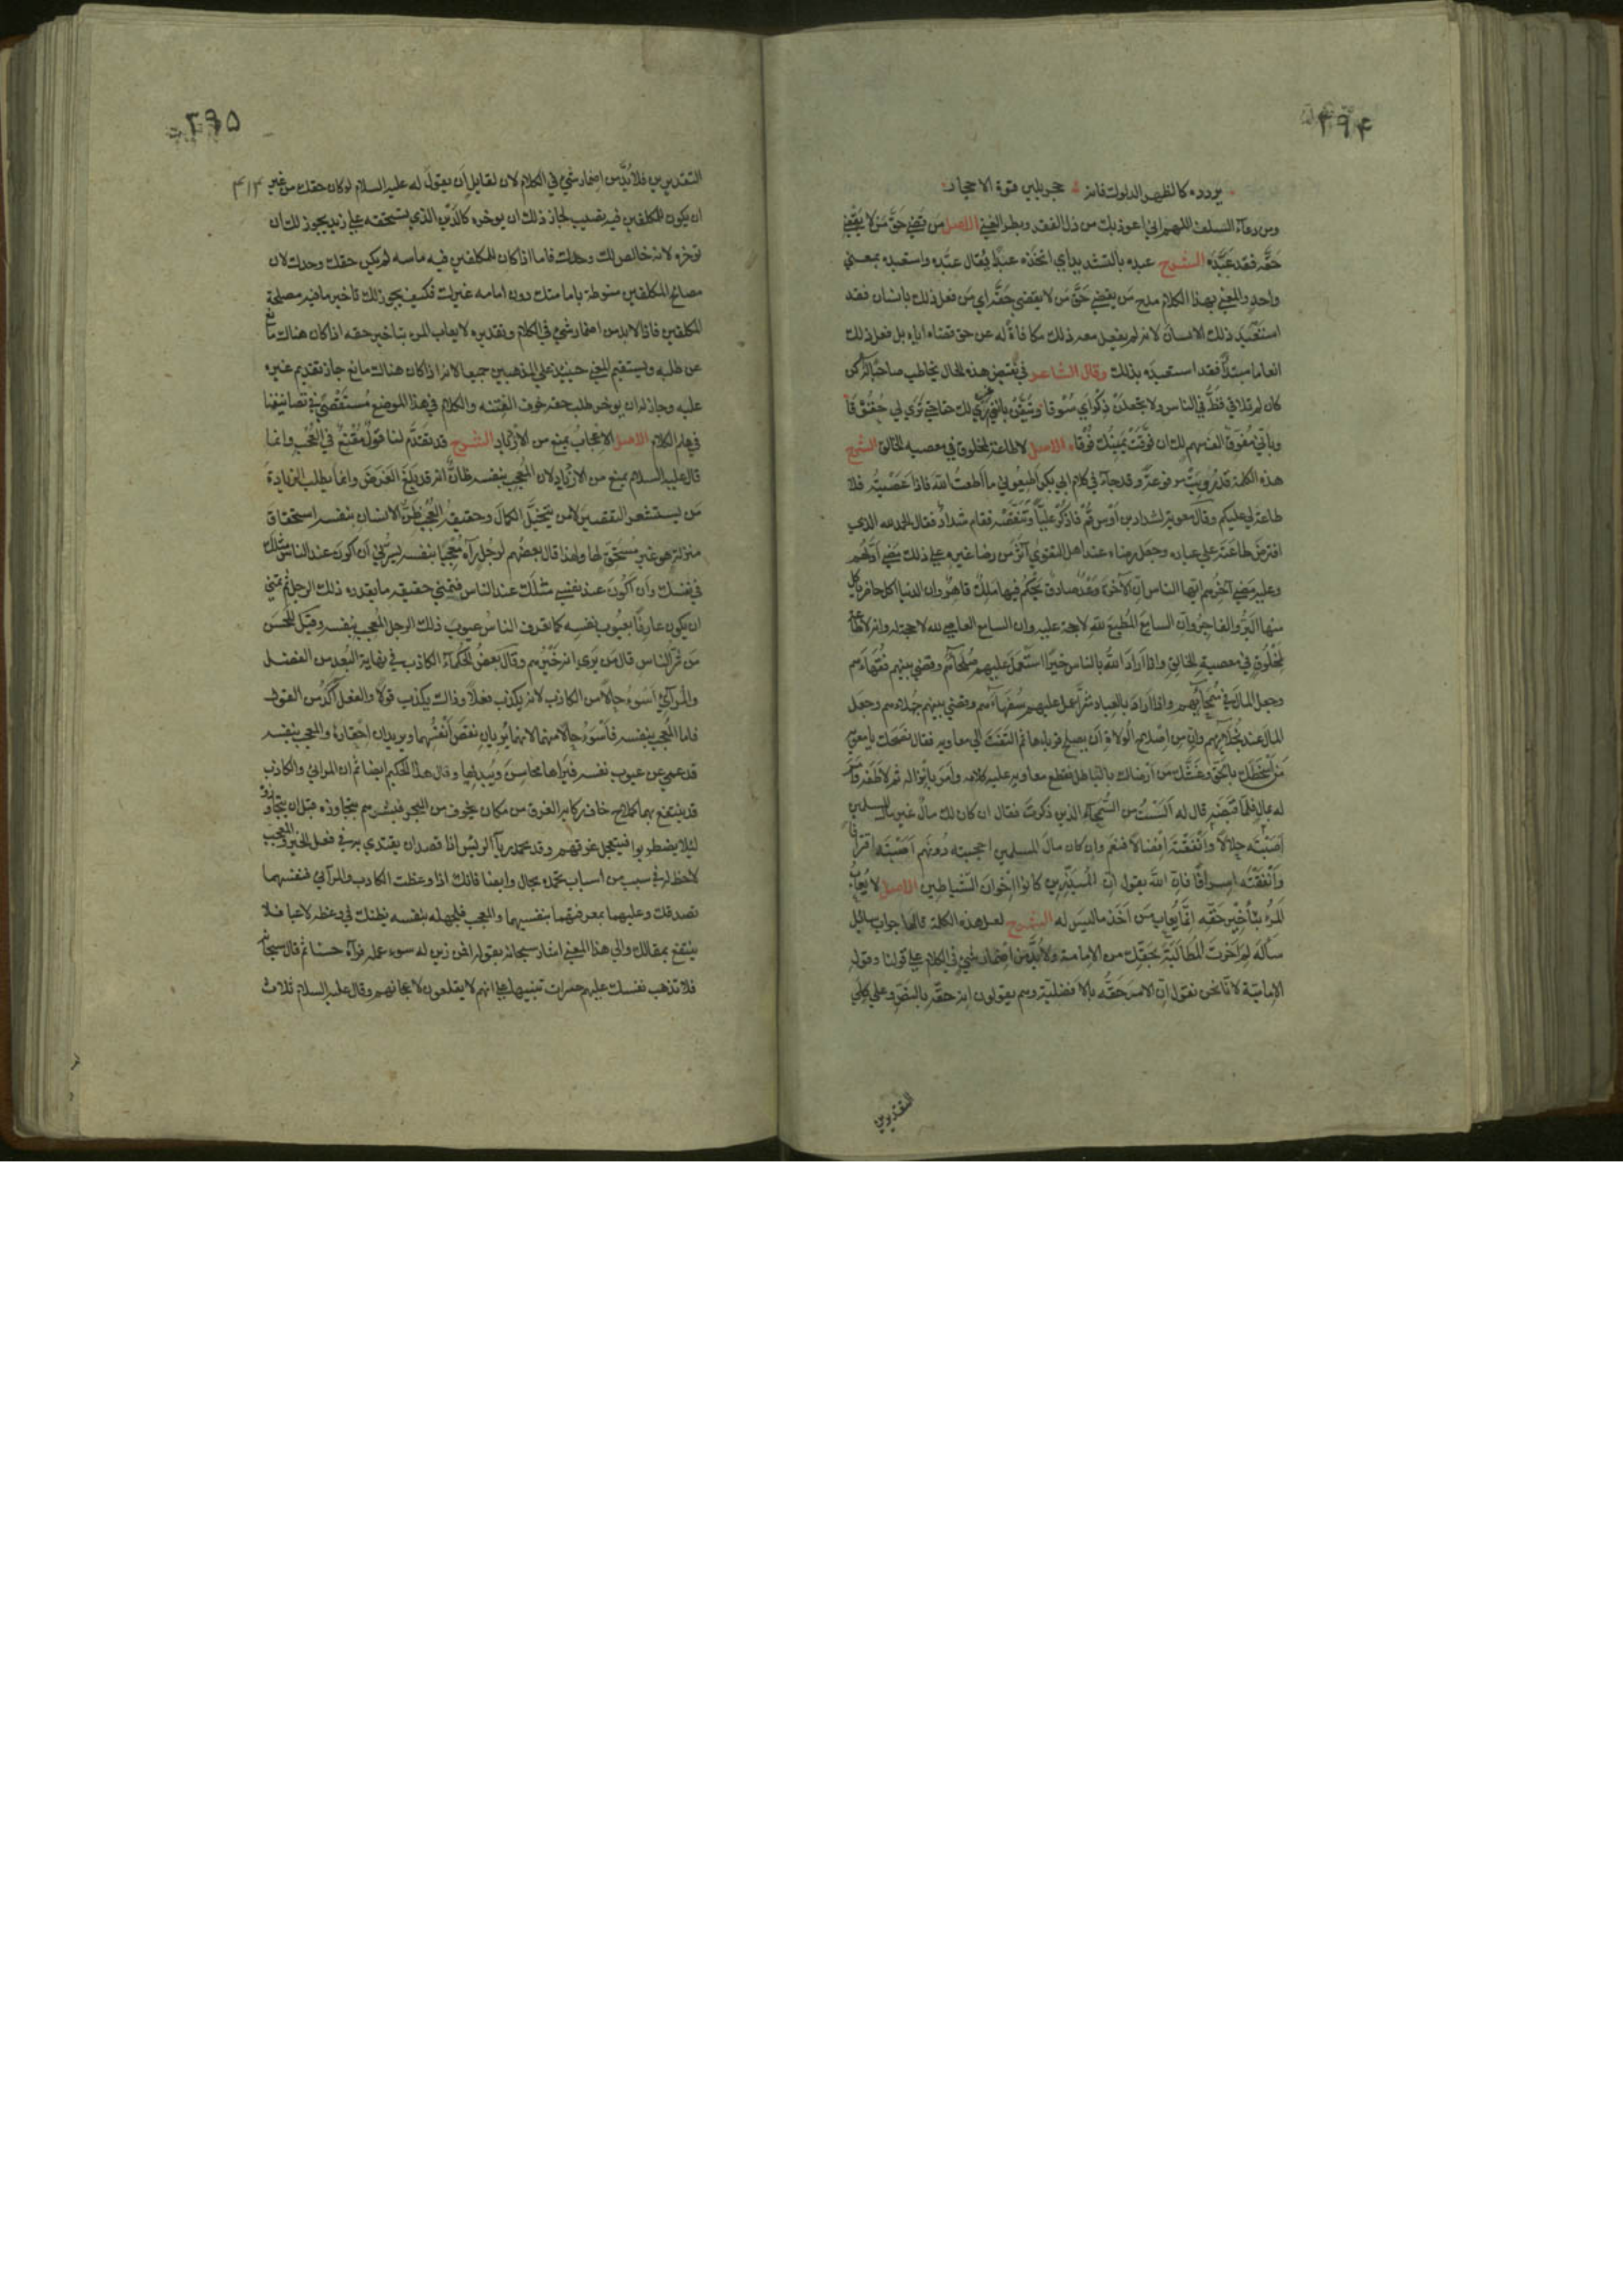 ۳۹۴
يردده كالظهر الدلوك فانه محجر يلين قوة الاحجار
ومن دعاء السلف اللهم اني اعوذ بك من ذل الفقر وبطر الغنى الاصل من قضى حق من لا يقضي
حقه فقد عبده الشرح عبده بالتشديد اي اتخذه عبدا يقال عبده واستعبده بمعنى
واحد والمعنى بهذا الكلام مدح من يقضي حق من لا يقضي حقه اي من فعل ذلك بانسان فقد
استعبد ذلك الانسان لانه لم يفعل معه ذلك مكافاة له عن حق قضاه اياه بل فعل ذلك
انعاما مبتدأ فقد استعبده بذلك وقال الشاعر في نقيض هذه الحال يخاطب صاحبا له كن
كان لم تلاقني قط في الناس ولا تجعلن ذكراي سوقا وتيقن بانني غير راء لك حقا حتى ترى لي حقوقا
وبأني مفوق الف سهم لك ان فوقت يمينك فوقا الاصل لا طاعة لمخلوق في معصية الخالق الشرح
هذه الكلمة قد رويت مرفوعة وقد جاء في كلام ابي بكر اطيعوني ما اطعت الله فاذا عصيته فلا
طاعة لي عليكم وقال معوية لشداد بن اوس قم فاذكر عليا وتنقصه فقام شداد فقال الحمد لله الذي
افترض طاعته على عباده وجعل رضاه عند اهل التقوى آثر من رضا غيره على ذلك مضى اولهم
وعليه مضى آخرهم ايها الناس ان الآخرة وعد صادق يحكم فيها ملك قاهر وان الدنيا اكل حاضر ياكل
منها البر والفاجر وان السامع المطيع لله لا حجة عليه وان السامع العاصي لله لا حجة له وانه لا طاعة
لمخلوق في معصية الخالق واذا اراد الله بالناس خيرا استعمل عليهم صلحاءهم وقضى بينهم فقهاءهم
وجعل المال في سمحائهم واذا اراد بالعباد شرا عمل عليهم سفهاءهم وقضى بينهم جهلاءهم وجعل
المال عند بخلائهم وان من اصلاح الولاة ان يصلح قرناءها ثم التفت الى معاوية فقال نصحك يا معوية
من اسخطك بالحق وغشك من ارضاك بالباطل فقطع معاوية عليه كلامه وامر بانزاله ثم لاطفه وامر
له بمال فلما قبضه قال له الست من السمحاء الذين ذكرت فقال ان كان لك مال غير مال المسلمين
اصبته حلالا وانفقته افضالا فنعم وان كان مال المسلمين احتجبته دونهم اصبته اقترافا
وانفقته اسرافا فان الله يقول ان المبذرين كانوا اخوان الشياطين الاصل لا يعاب
المرء بتأخير حقه انما يعاب من اخذ ما ليس له الشرح لعل هذه الكلمة قالها جواب سائل
سأله لم اخرت المطالبة بحقك من الامامة ولا بد من اضمار شيء في الكلام على قولنا وقول
الامامية لانا نحن نقول ان الامر حقه بالافضلية وهم يقولون انه حقه بالنص وعلى كلى
التقديرين
۳۹۵
۴۱۴
التقديرين فلا بد من اضمار شيء في الكلام لان لقايل ان يقول له عليه السلام لو كان حقك من غير
ان يكون للمكلفين فيه نصيب لجاز ذلك ان يوخره كالدين الذي يستحقه على زيد يجوز لك ان
توخره لانه خالص لك وحدك فاما اذا كان للمكلفين فيه ماسة لم يكن حقك وحدك لان
مصالح المكلفين منوطة بامامتك دون امامة غيرك فكيف يجوز لك تاخير ما فيه مصلحة
المكلفين فاذا لا بد من اضمار شيء في الكلام وتقديره لا يعاب المرء بتاخير حقه اذا كان هناك مانع
عن طلبه ويستقيم المعنى حينئذ على المذهبين جميعا لانه اذا كان هناك مانع جاز تقديم غيره
عليه وجاز له ان يوخر طلب حقه خوف الفتنة والكلام في هذا الموضع مستقصى في تصانيفنا
في علم الكلام الاصل الاعجاب يمنع من الازدياد الشرح قد تقدم لنا قول مقنع في العجب وانما
قال عليه السلام يمنع من الازدياد لان المعجب بنفسه ظان انه قد بلغ الغرض وانما يطلب الزيادة
من يستشعر التقصير لا من يتخيل الكمال وحقيقة العجب ظن الانسان بنفسه استحقاق
منزلة هو غير مستحق لها ولهذا قال بعضهم لرجل رآه معجبا بنفسه يسرني ان اكون عند الناس مثلك
في نفسك وان اكون عند نفسي مثلك عند الناس فتمنى حقيقة ما يقدره ذلك الرجل ثم تمنى
ان يكون عارفا بعيوب نفسه كما تعرف الناس عيوب ذلك الرجل المعجب بنفسه وقيل للحسن
من شر الناس قال من يرى انه خيرهم وقال بعض الحكماء الكاذب في نهاية البعد من الفضل
والمرائي اسوء حالا من الكاذب لانه يكذب فعلا وذاك يكذب قولا والفعل آكد من القول
فاما المعجب بنفسه فاسوء حالا منهما لانهما يريان نقص انفسهما ويريدان اخفاءه والمعجب بنفسه
قد عمي عن عيوب نفسه فيراها محاسن ويبديها وقال هذا الحكيم ايضا ثم ان المرائي والكاذب
قد ينتفع بهما كملاح خاف ركابه الغرق من مكان مخوف من البحر فبشرهم بتجاوزه قبل ان يتجاوزوه
لئلا يضطربوا فيتعجل غرقهم وقد يحمد رياء الرئيس اذا قصد ان يقتدي به في فعل الخير والمعجب
لا حظ له في سبب من اسباب المحمدة بحال وايضا فانك اذا وعظت الكاذب والمرآئي فنفسهما
تصدقك وعليهما بمعرفتهما بنفسيهما والمعجب فلجهله بنفسه يظنك في وعظه لاغيا فلا
ينتفع بمقالك والى هذا المعنى اشار سبحانه بقوله افمن زين له سوء عمله فرآه حسنا ثم قال سبحانه
فلا تذهب نفسك عليهم حسرات تنبيها على انهم لا يقلعون لاعجابهم وقال عليه السلام ثلاث